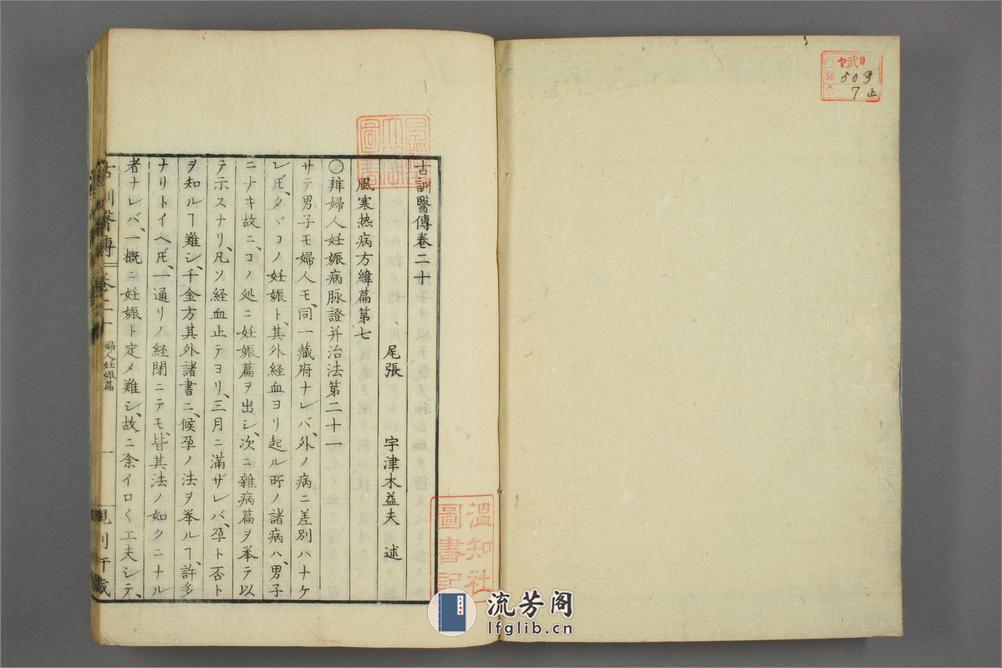 古訓醫傳卷二十
尾張　宇津木益夫　述
風寒热病方緯篇第七
〇辨婦人妊娠病脉證并治法第二十一
サテ男子モ婦人モ、同一藏府ナレバ、外ノ病ニ差別ハナケ
レ𪜈、タヾコノ妊娠ト、其外経血ヨリ起ル所ノ諸病ハ、男子
ニナキ故ニ、コノ処ニ妊娠篇ヲ出シ、次ニ雜病篇ヲ挙テ以
テ示スナリ、凡ソ経血止テヨリ、三月ニ滿ザレバ、孕ト否ト
ヲ知ルヿ難シ、千金方其外諸書ニ、候孕ノ法ヲ挙ルヿ、許多
ナリトイヘ𪜈、一通リノ経閉ニテモ、皆其法ノ如クニナル
者ナレバ、一概ニ妊娠ト定メ難シ、故ニ余イロ〱工夫シテ、
古訓醫傳
婦人妊娠篇
一
溫知社
圖書記
武
503
7
止
流芳阁
lfglib.cn